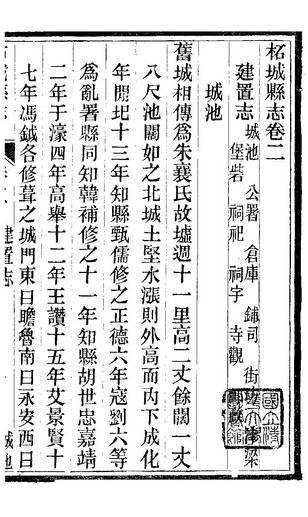 柘城縣志卷二
建置志 城池 公署 倉庫 鋪司 街 梁
堡砦 祠祀 祠宇 寺觀
城池
舊城相傳為朱襄氏故墟週十一里高二丈餘闊一丈
八尺池闊如之北城土堅水漲則外高而內下成化
年閒圮十三年知縣甄儒修之正德六年寇劉六等
為亂署縣同知韓補修之十一年知縣胡世忠嘉靖
二年于濠四年高舉十二年王讚十五年艾景賢十
七年馮鉞各修葺之城門東曰瞻魯南曰永安西曰
建置志
城池